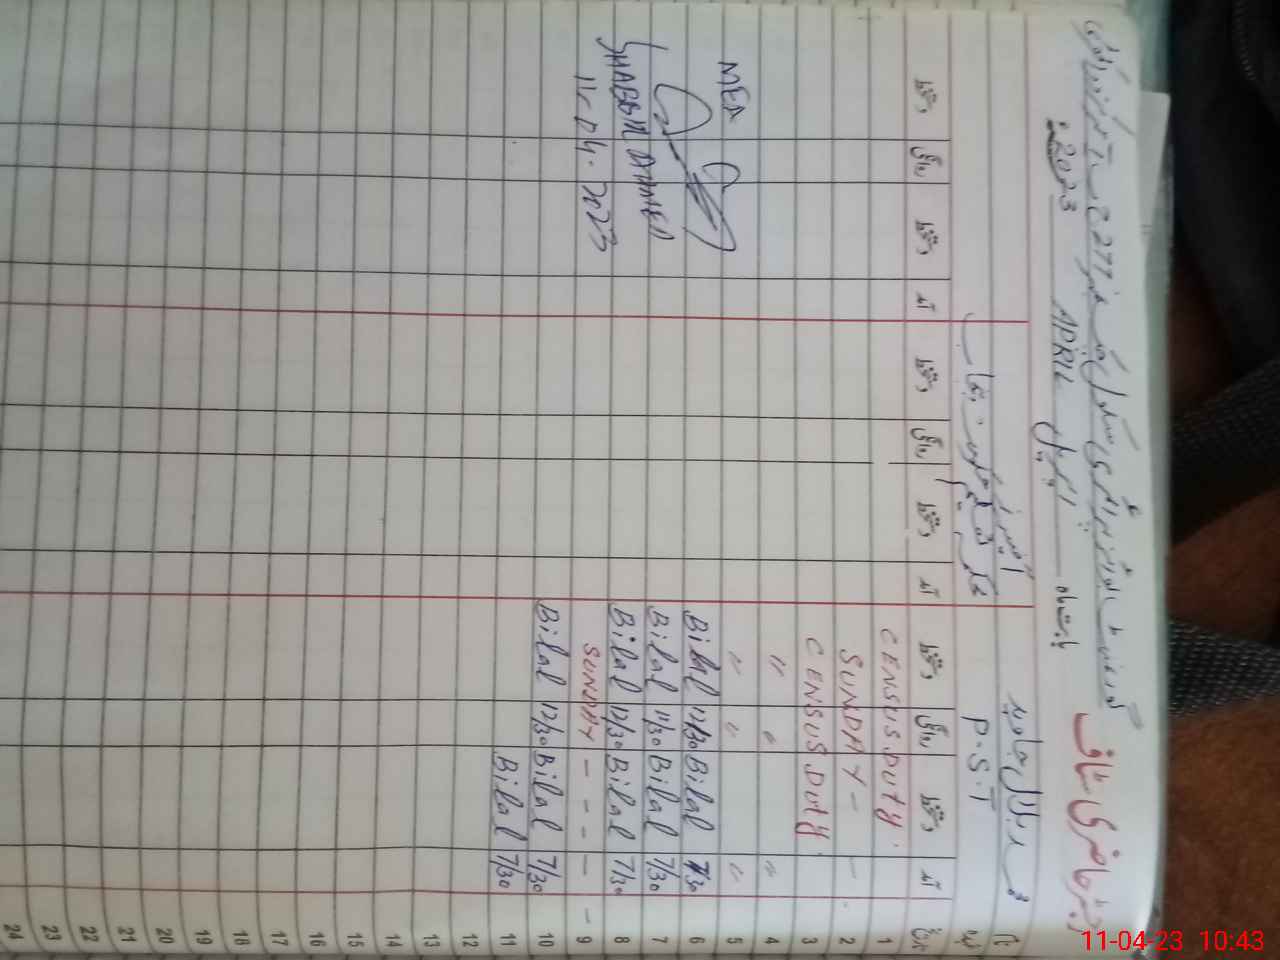 رجسٹر حاضری سٹاف گورنمنٹ بوائز پرائمری سکول چک نمبر 277
بابت ماہ اپریل APRIL 2023
نام محمد بلال جاوید
عہدہ P.S.T
تاریخ آمد دستخط روانگی دستخط آمد دستخط روانگی دستخط آمد دستخط روانگی دستخط
1 CENSUS DUTY.
2 - SUNDAY -
3 CENSUS DUTY.
4 " " "
5 " " " MEA
6 7/30 Bilal 12/30 Bilal
7 7/30 Bilal 11/30 Bilal
8 7/30 Bilal 12/30 Bilal SHABBIR AHMED
9 - - - - SUNDAY 11-04-2023
10 7/30 Bilal 12/30 Bilal
11 7/30 Bilal
12
13
14
15
16
17
18
19
20
21
22
23
24
11-04-23 10:43